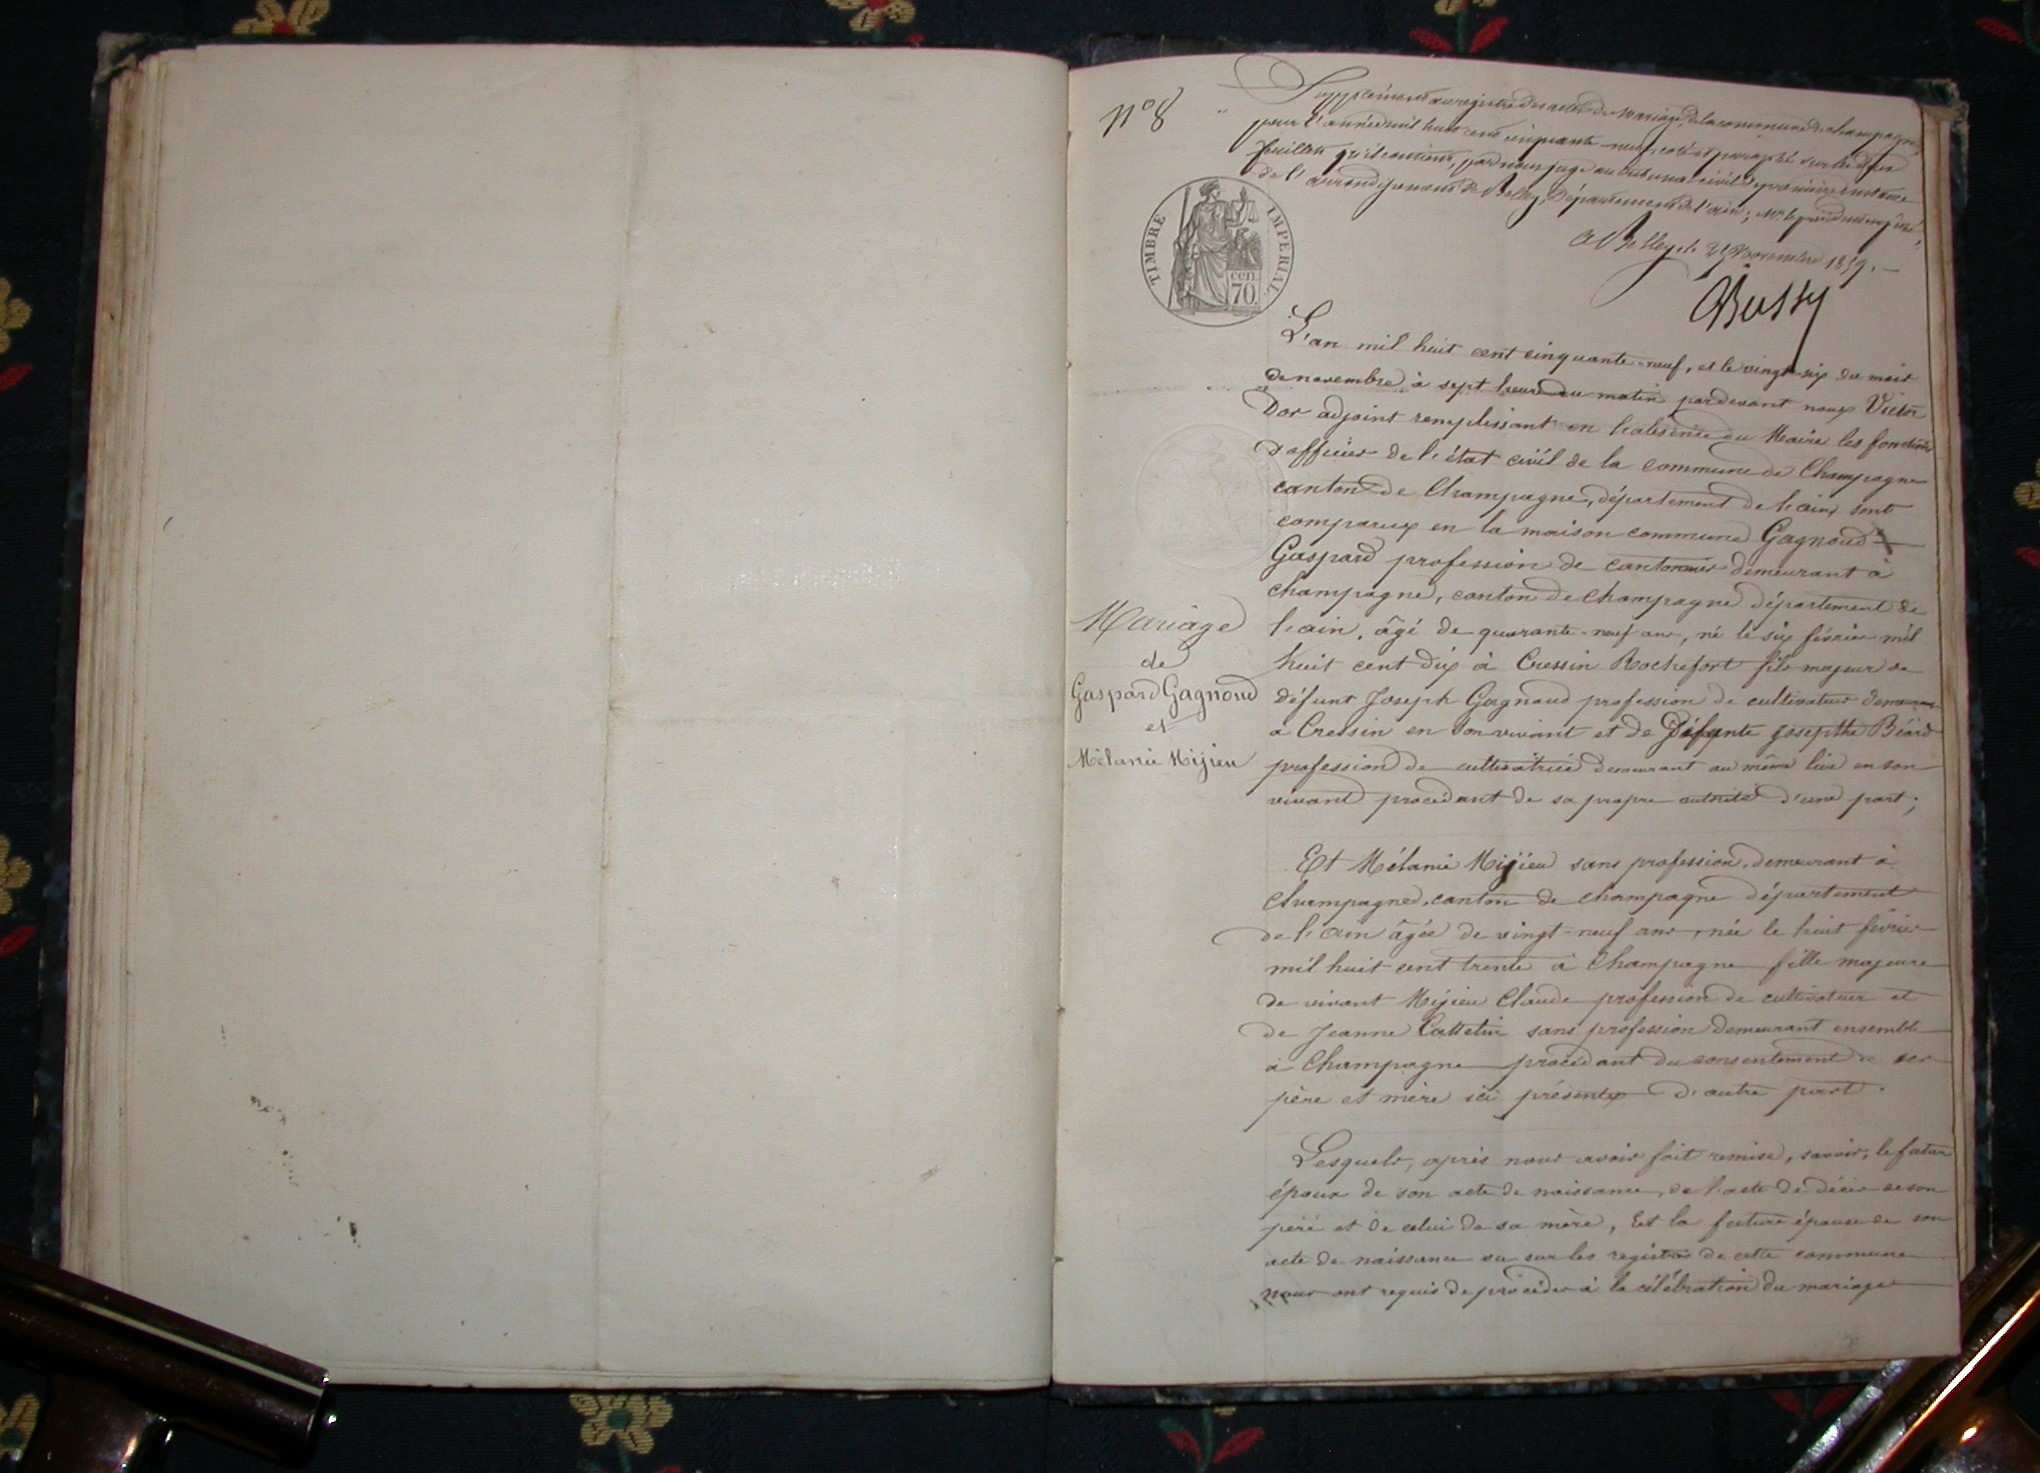 N° 8
Supplément au registre des actes de Mariage de la commune de Champagne,
pour l'année mil huit cent cinquante neuf, coté et paraphé sur les deux
feuillets qu'il contient, par nous juge au tribunal civil de première instance
de l'arrondissement de Belley, Département de l'ain; Mr le président empêché,
A Belley le 25 Novembre 1859.
Bussy
TIMBRE IMPERIAL
cen.
70.
L'an mil huit cent cinquante-neuf, et le vingt-six du mois
de novembre à sept heures du matin pardevant nous Victor
Dor adjoint remplissant en l'absence du Maire les fonctions
d'officier de l'état civil de la commune de Champagne
canton de Champagne, département de l'ain, sont
comparus en la maison commune Gagnoud
Gaspard profession de cantonnier demeurant à
champagne, canton de Champagne département de
l'ain, âgé de quarante-neuf ans, né le six février mil
huit cent dix à Cressin Rochefort fils majeur de
défunt Joseph Gagnoud profession de cultivateur demeurant
a Cressin en son vivant et de Défunte Josephte Béard
profession de cultivatrice demeurant au même lieu en son
vivant procédant de sa propre autorité d'une part;
Mariage
de
Gaspard Gagnoud
et
Mélanie Mijieu
Et Mélanie Mijieu sans profession, demeurant à
champagne, canton de champagne département
de l'ain âgée de vingt-neuf ans, née le huit février
mil huit cent trente à Champagne fille majeure
de vivant Mijieu Claude profession de cultivateur et
de Jeanne Cattelin sans profession demeurant ensemble
à Champagne procédant du consentement de ses
père et mère ici présents d'autre part.
Lesquels, après nous avoir fait remise, savoir, le futur
époux de son acte de naissance, de l'acte de décès de son
père et de celui de sa mère, Et la future épouse de son
acte de naissance vu sur les registres de cette commune
nous ont requis de procéder à la célébration du mariage